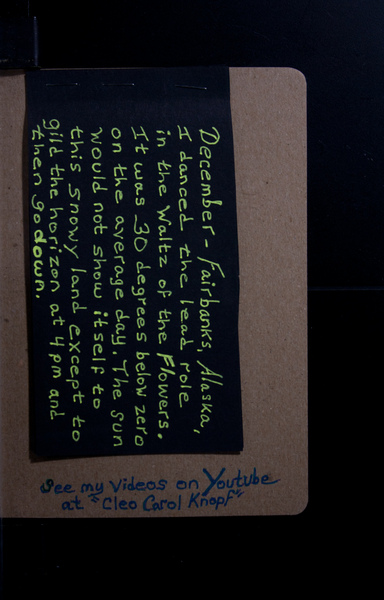 December - Fairbanks, Alaska,
I danced the lead role
in the Waltz of the Flowers.
It was 30 degrees below zero
on the average day. The sun
would not show itself to
this snowy land except to
gild the horizon at 4 pm and
then go down.
See my videos on Youtube
at "Cleo Carol Knopf"